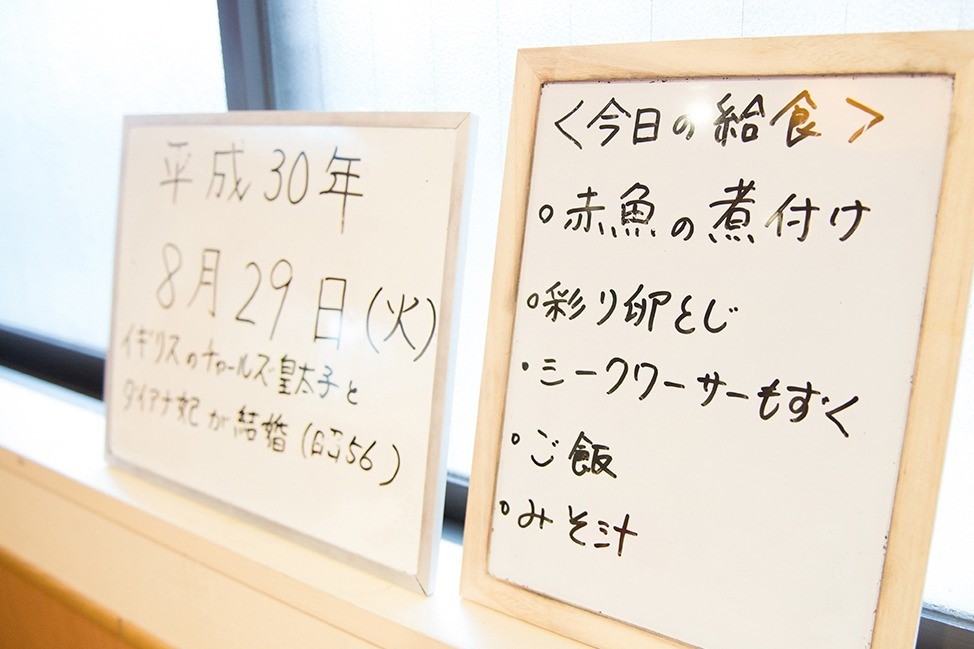 平成30年
8月29日(火)
イギリスのチャールズ皇太子と
ダイアナ妃が結婚(昭56)
<今日の給食>
○赤魚の煮付け
○彩り卵とじ
・シークワーサーもずく
○ご飯
○みそ汁